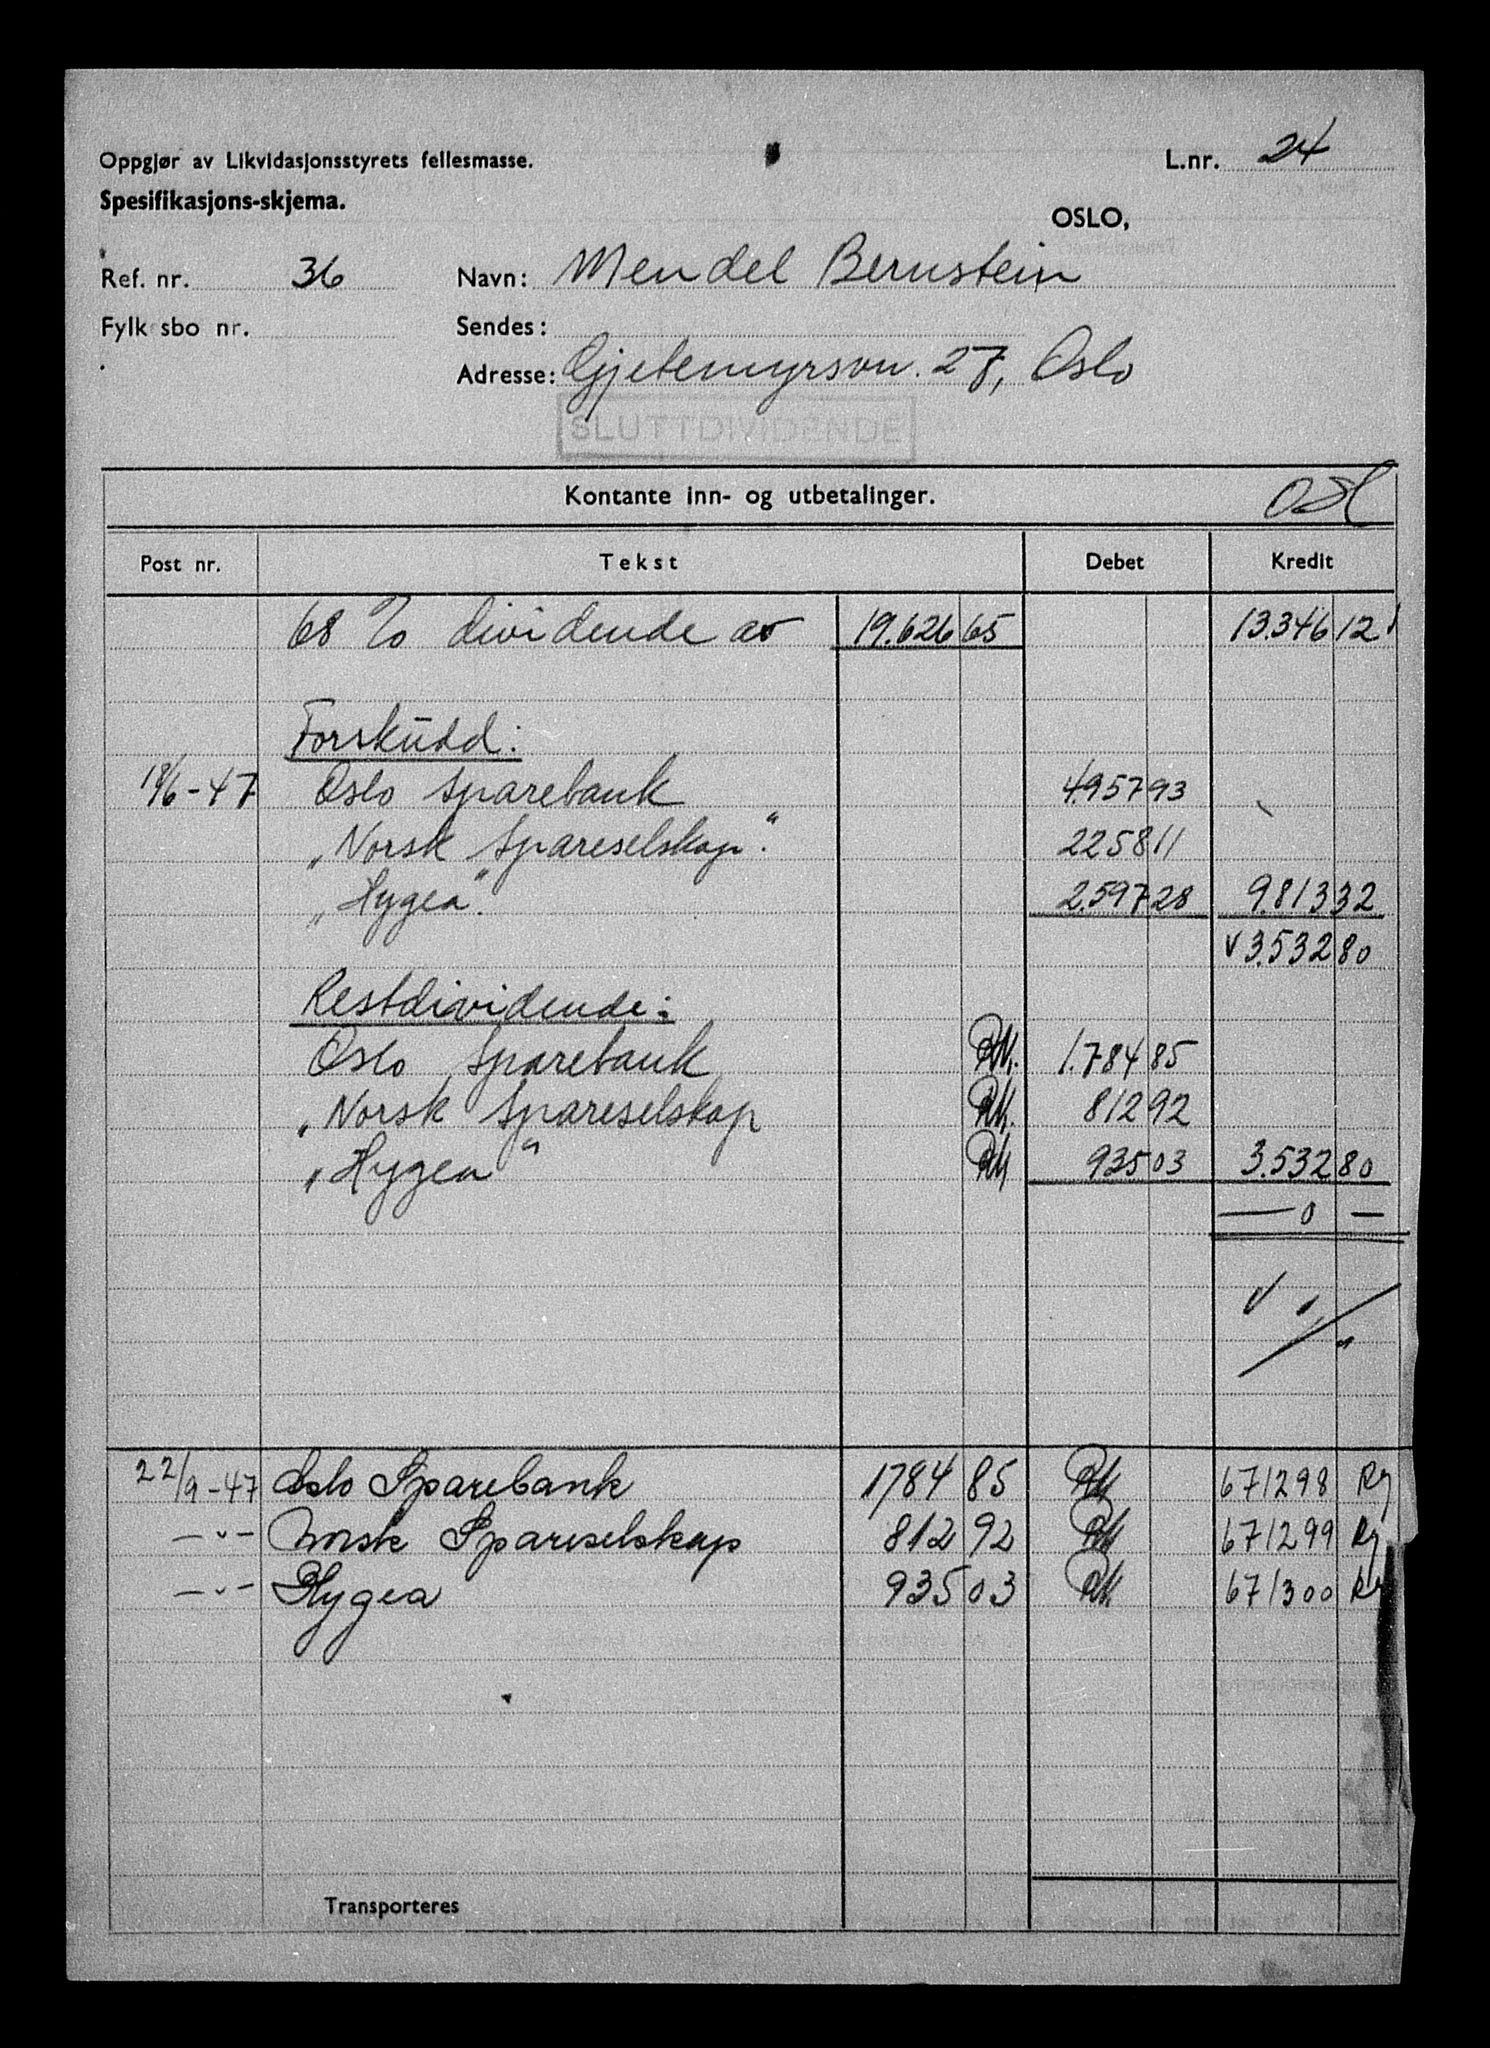 Oppgjør av Likvidasjonsstyrets fellesmasse. L.nr. 24
Spesifikasjons-skjema.
OSLO,
Ref. nr. 36 Navn: Mendel Bernstein
Fylk sbo nr. Sendes:
Adresse: Gjetemyrsvn. 27, Oslo
SLUTTDIVIDENDE
Kontante inn- og utbetalinger.
Post nr. Tekst Debet Kredit
68 % dividende av 19.626 65 13.346 12
Forskudd:
18/6-47 Oslo Sparebank 4.957 93
"Norsk Spareselskap". 2258 11
"Hygea". 2.597 28 9.813 32
3.532 80
Restdividende:
Oslo Sparebank 1.784 85
"Norsk Spareselskap 812 92
"Hygea" 935 03 3.532 80
— 0 —
22/9-47 Oslo Sparebank 1784 85 671298
—"— Norsk Spareselskap 812 92 671299
—"— Hygea 935 03 671300
Transporteres